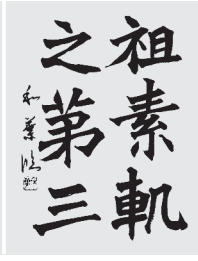 祖素軌
之第三
和葉臨